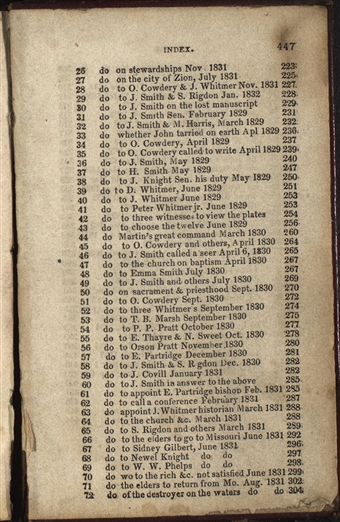 INDEX. 447
26 do on stewardships Nov 1831 223
27 do on the city of Zion, July 1831 225
28 do to O. Cowdery & J. Whitmer Nov. 1831 227
29 do to J. Smith & S. Rigdon Jan. 1832 228
30 do to J. Smith on the lost manuscript 229
31 do to J. Smith Sen. February 1829 231
32 do to J. Smith & M. Harris, March 1829 232
33 do whether John tarried on earth Apl 1829 236
34 do to O. Cowdery, April 1829 237
35 do to O Cowdery called to write April 1829 239
36 do to J. Smith, May 1829 240
37 do to H. Smith May 1829 247
38 do to J. Knight Sen. his duty May 1829 250
39 do to D. Whitmer, June 1829 251
40 do to J. Whitmer June 1829 253
41 do to Peter Whitmer jr. June 1829 253
42 do to three witnesses to view the plates 254
43 do to choose the twelve June 1829 256
44 do Martin's great command March 1830 260
45 do to O. Cowdery and others, April 1830 264
46 do to J. Smith called a seer April 6, 1830 265
47 do to the church on baptism April 1830 267
48 do to Emma Smith July 1830 267
49 do to J. Smith and others July 1830 269
50 do on sacrament & priesthood Sept. 1830 270
51 do to O. Cowdery Sept. 1830 272
52 do to three Whitmers September 1830 274
53 do to T. B. Marsh September 1830 275
54 do to P. P. Pratt October 1830 277
55 do to E. Thayre & N. Sweet Oct. 1830 278
56 do to Orson Pratt November 1830 280
57 do to E. Partridge December 1830 281
58 do to J. Smith & S. R gdon Dec. 1830 282
59 do to J. Covill January 1831 282
60 do to J. Smith is answer to the above 285
61 do to appoint E. Partridge bishop Feb. 1831 285
62 do to call a conference February 1831 287
63 do appoint J. Whitmer historian March 1831 288
64 do to the church &c. March 1831 288
65 do to S. Rigdon and others March 1831 289
66 do to the elders to go to Missouri June 1831 292
67 do to Sidney Gilbert, June 1831 296
68 do to Newel Knight do do 297
69 do to W. W. Phelps do do 298
70 do wo to the rich &c. not satisfied June 1831 299
71 do the elders to return from Mo. Aug. 1831 302
72 do of the destroyer on the waters do do 304